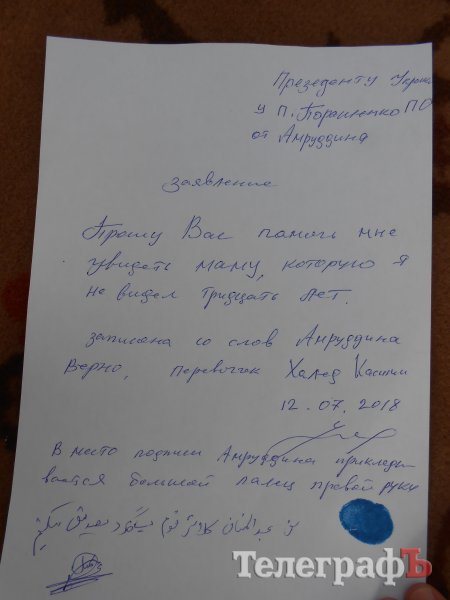 Президенту Украины
у П. Порошенко ПО
от Амруддина
заявление
Прошу Вас помочь мне
увидеть маму, которую я
не видел тридцать лет.
записана со слов Амруддина
Верно, перевотчек Халед Касими
12.07.2018
В место подписи Амруддина приклады
вается большой палец правой руки
ТелеграфЪ